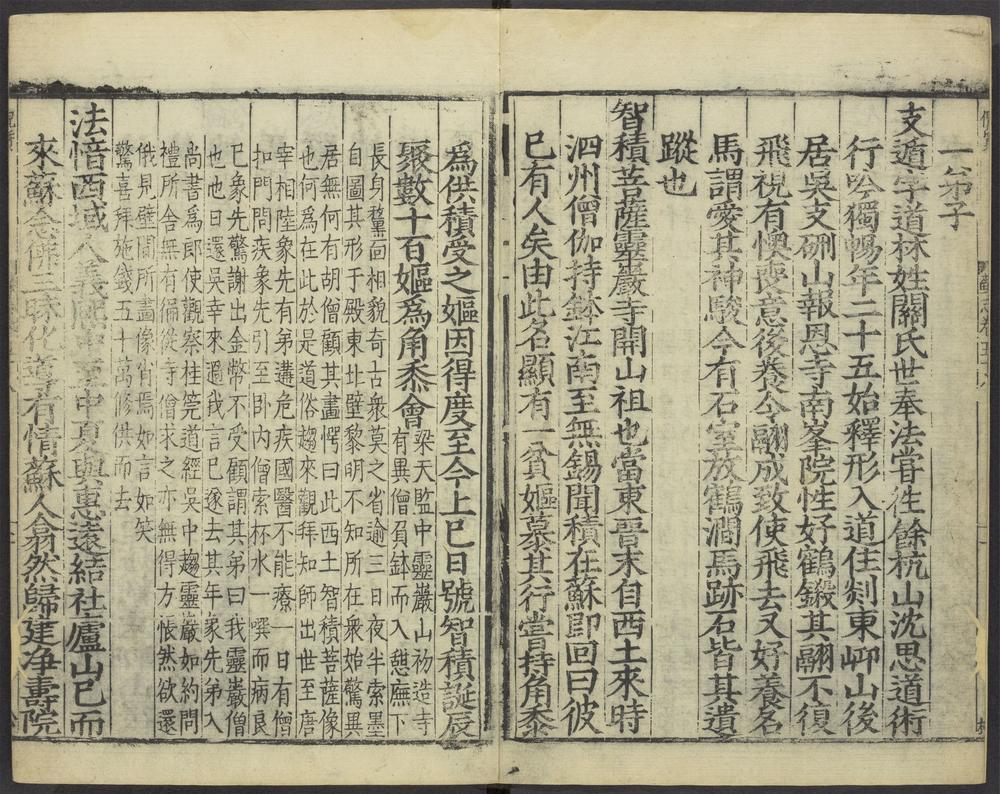 一弟子
支遁字道林姓關氏世奉法嘗徃餘杭山沈思道術
行吟獨暢年二十五始釋形入道住剡東岬山後
居吳支硎山報恩寺南峯院性好鶴鎩其翮不復
飛視有懊喪意後養令翮成致使飛去又好養名
馬謂愛其神駿今有石室放鶴澗馬跡石皆其遺
蹤也
智積菩薩靈巖寺開山祖也當東晉末自西土來時
泗州僧伽持鉢江南至無錫聞積在蘇即回曰彼
已有人矣由此名顯有一貧嫗慕其行嘗持角黍
爲供積受之嫗因得度至今上巳日號智積誕辰
聚數十百嫗爲角黍會
梁天監中靈巖山初造寺
有異僧負鉢而入憇廡下
長身𪐴面相貌奇古衆莫之省逾三日夜半索墨
自圖其形于殿東北壁黎明不知所在衆始驚異
居無何有胡僧顧其畫愕曰此西土智積菩薩像
也何爲在此於是道俗趨來觀拜知師出世至唐
宰相陸象先有弟遘危疾國醫不能療一日有僧
扣門問疾象先引至卧内僧索杯水一噀而病良
已象先驚謝出金幣不受顧謂其弟曰我靈巖僧
也他日還吳幸來過我言已遂去其年象先弟入
尚書爲郎使觀察桂筦道經吳中趨靈巖如約問
禮所舍無有徧從寺僧求之亦無得方悵然欲還
俄見壁間所畫像肖焉如言如笑
驚喜拜施錢五十萬修供而去
法愔西域人義熙中至中夏與惠遠結社廬山已而
來蘇念佛三昧化導有情蘇人翕然歸建净壽院